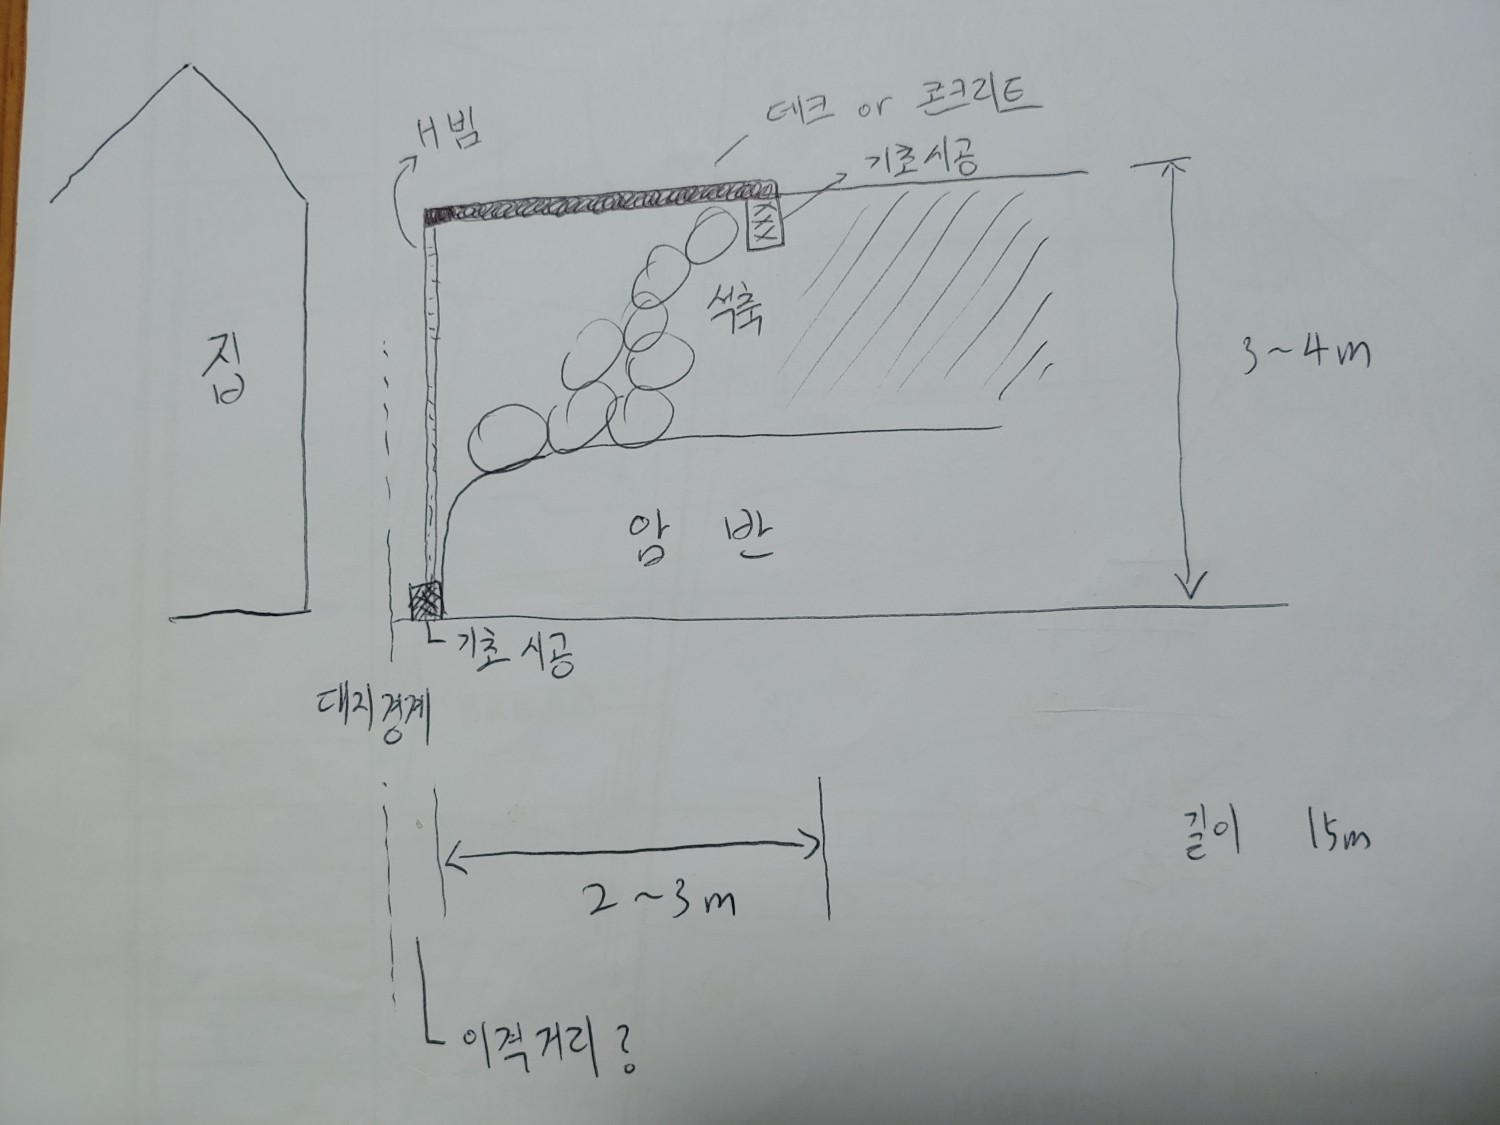 데크 or 콘크리트
H빔
기초시공
집
석축
3~4m
암 반
기초 시공
대지경계
길이 15m
2~3m
이격거리?